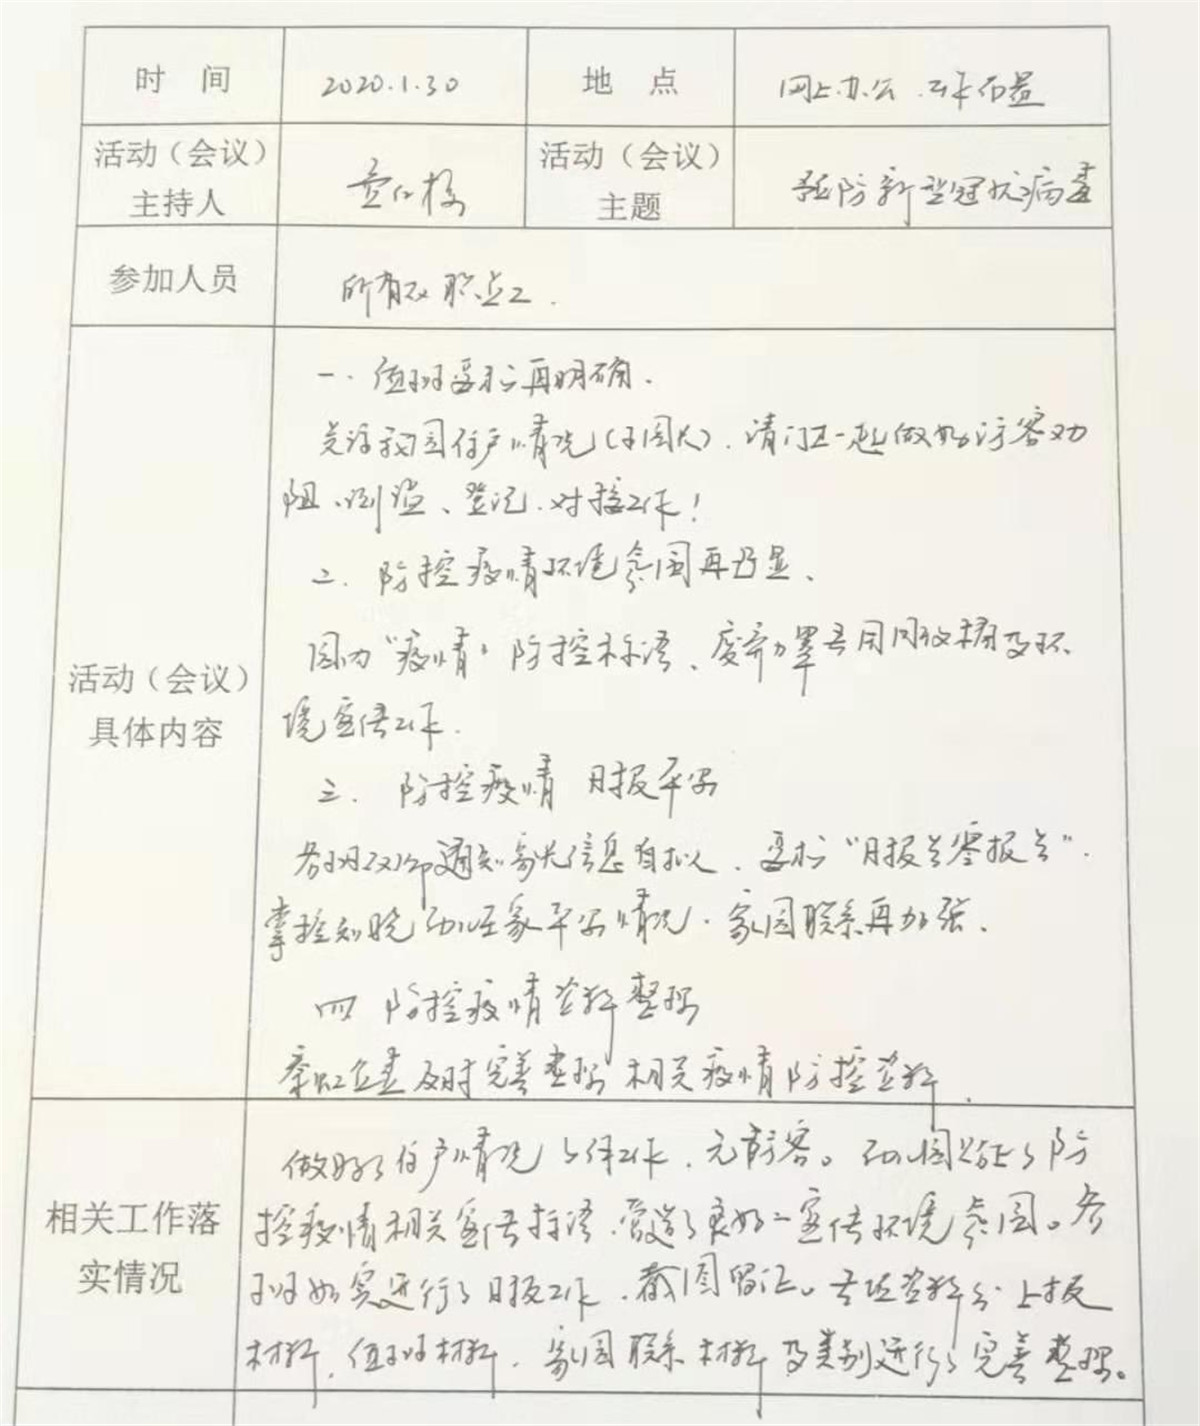 时 间 2020.1.30 地 点 网上办公.工作布置
活动（会议）
主持人
活动（会议）
主题
防新型冠状病毒
参加人员 所有教职员工.
活动（会议）
具体内容
一.值班要求再明确.
关注我园住户情况(于园大).请门卫一起做好访客劝
阻、测温、登记.对接工作!
二.防控疫情环境氛围再凸显、
园内"疫情"防控标语、废弃口罩专用回收桶及环
境宣传工作.
三.防控疫情 日报平安
各班级教师通知家长信息自拟.要求"日报告零报告".
掌控知晓幼儿在家平安情况.家园联系再加强.
四 防控疫情资料整理
及时完善整理相关疫情防控资料.
相关工作落
实情况
做好了住户情况了解工作.无访客。幼儿园张贴了防
控疫情相关宣传标语.营造了良好的宣传环境氛围。各
班如实进行了日报工作.截图留证。专项资料分上报
材料.值班材料.家园联系材料及类别进行了完善整理。